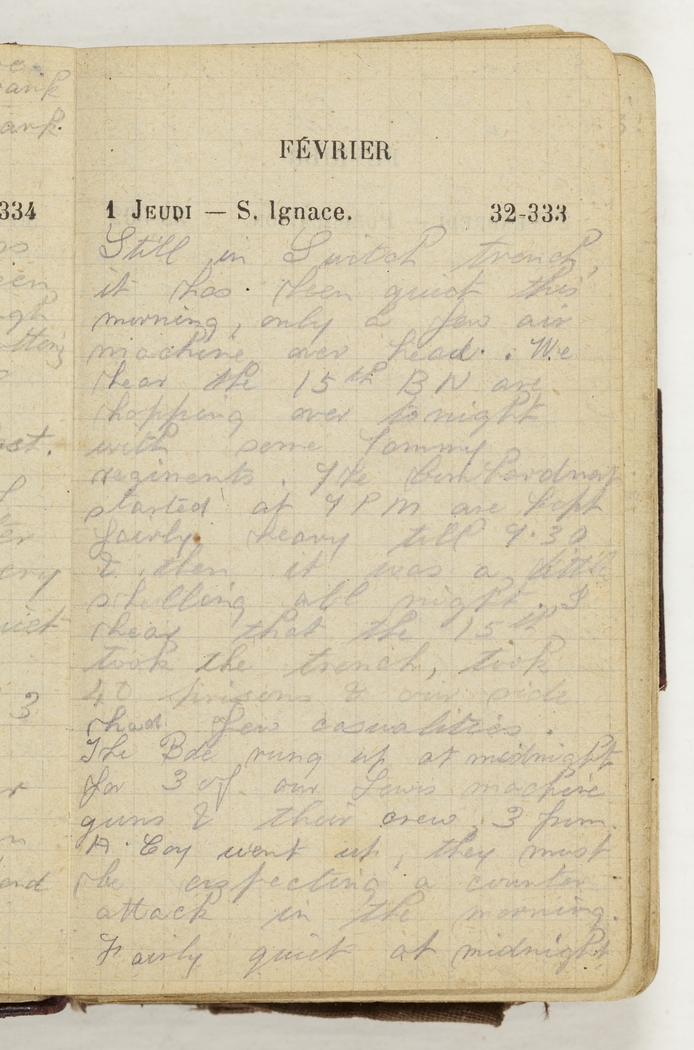 ank
ark.
FÉVRIER
334
1 JEUDI — S. Ignace. 32-333
Still in Switch trench,
it has been quiet this
morning, only a few air
machine over head. We
hear the 15th BN are
hopping over tonight
with some Tommy
regiments. The bombardment
started at 7 PM are kept
fairly heavy till 9.30
& then it was a little
shelling all night. I
hear that the 15th
took the trench, took
40 prisons & our side
had few casualities.
The Bde rung up at midnight
for 3 of our Lewis machine
guns & their crew. 3 from
A. Coy went up, they must
be expecting a counter
attack in the morning.
Fairly quiet at midnight